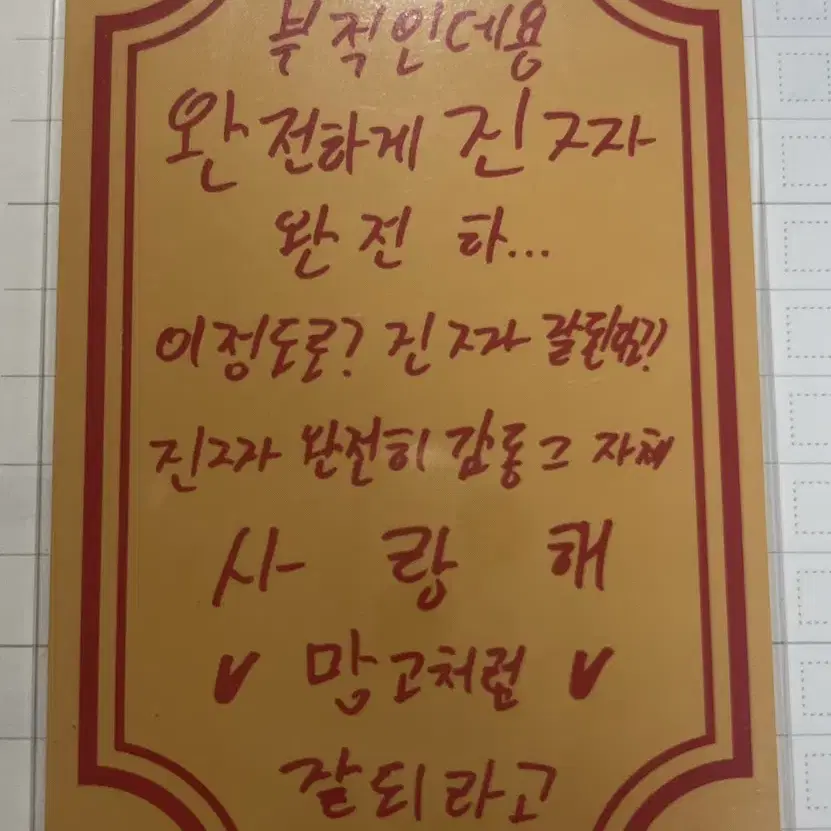 부적인데용
완전하게 진짜
완전 하...
이정도로? 진짜 잘된텀??
진짜 완전히 감동 그 자체
사랑해
v 망고처럼 v
잘되라고